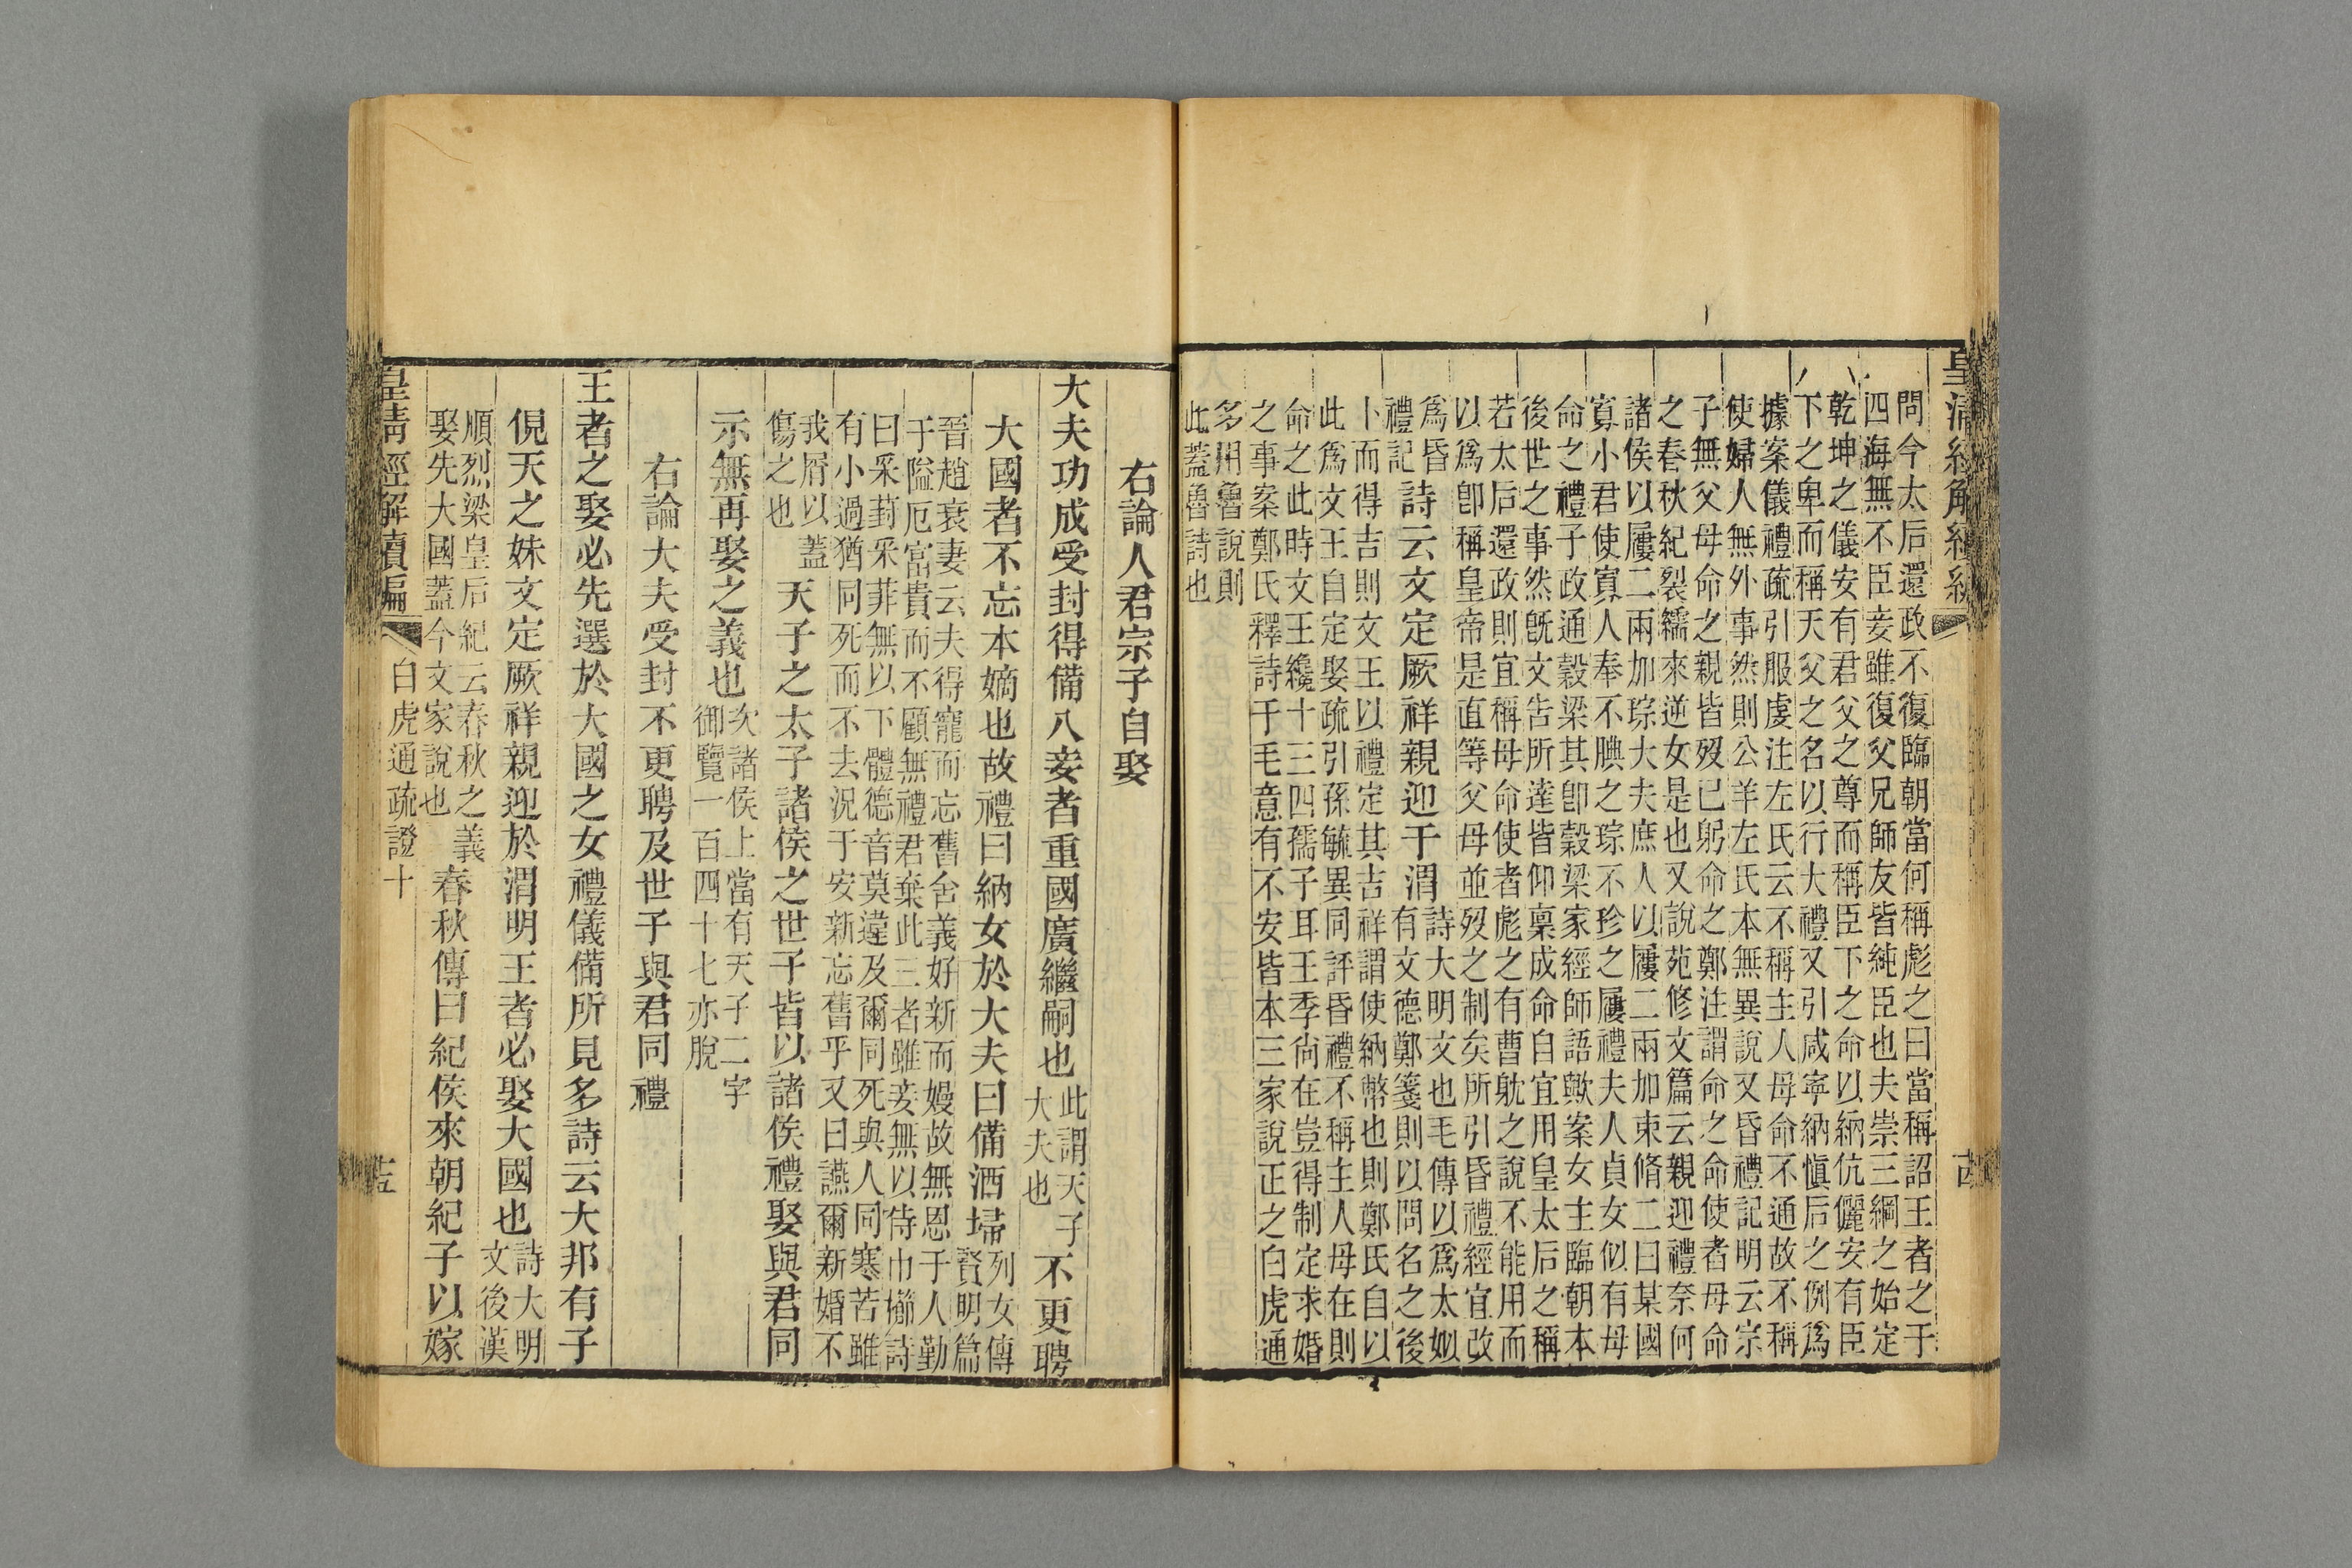 皇清經解續編
問今太后還政不復臨朝當何稱彪之曰當稱詔王者之于
四海無不臣妾雖復父兄師友皆純臣也夫崇三綱之始定
乾坤之儀安有君父之尊而稱臣下之命以納伉儷安有臣
下之卑而稱天父之名以行大禮又引咸寧納愼后之例爲
據案儀禮疏引服虔注左氏云不稱主人母命不通故不稱
使婦人無外事然則公羊左氏本無異說又昏禮記明云宗
子無父母命之親皆歿已躬命之鄭注謂命之命使者母命
之春秋紀裂繻來逆女是也又說苑修文篇云親迎禮奈何
諸侯以屨二兩加琮大夫庶人以屨二兩加束脩二曰某國
寡小君使寡人奉不腆之琮不珍之屨禮夫人貞女似有母
命之禮子政通穀梁其卽穀梁家經師語歟案女主臨朝本
後世之事然旣文吿所達皆仰稟成命自宜用皇太后之稱
若太后還政則宜稱母命使者彪之有曹躭之說不能用而
以爲卽稱皇帝是直等父母並歿之制矣所引昏禮經宜改
爲昏
禮記
詩云文定厥祥親迎于渭
詩大明文也毛傳以爲太姒
有文德鄭箋則以問名之後
卜而得吉則文王以禮定其吉祥謂使納幣也則鄭氏自以
此爲文王自定娶疏引孫毓異同評昏禮不稱主人母在則
命之此時文王纔十三四孺子耳王季尙在豈得制定求婚
之事案鄭氏釋詩于毛意有不安皆本三家說正之白虎通
多用魯說則
此蓋魯詩也
右論人君宗子自娶
大夫功成受封得備八妾者重國廣繼嗣也
此謂天子
大夫也
不更聘
大國者不忘本嫡也故禮曰納女於大夫曰備酒埽
列女傳
賢明篇
晉趙衰妻云夫得寵而忘舊舍義好新而嫚故無恩于人勤
于隘厄富貴而不顧無禮君棄此三者雖妾無以侍巾櫛詩
曰采葑采菲無以下體德音莫違及爾同死與人同寒苦雖
有小過猶同死而不去況于安新忘舊乎又曰讌爾新婚不
我屑以蓋
傷之也
天子之太子諸侯之世子皆以諸侯禮娶與君同
示無再娶之義也
次諸侯上當有天子二字
御覽一百四十七亦脫
右論大夫受封不更聘及世子與君同禮
王者之娶必先選於大國之女禮儀備所見多詩云大邦有子
俔天之妹文定厥祥親迎於渭明王者必娶大國也
詩大明
文後漢
順烈梁皇后紀云春秋之義
娶先大國蓋今文家說也
春秋傳曰紀侯來朝紀子以嫁
皇清經解續編
白虎通疏證十